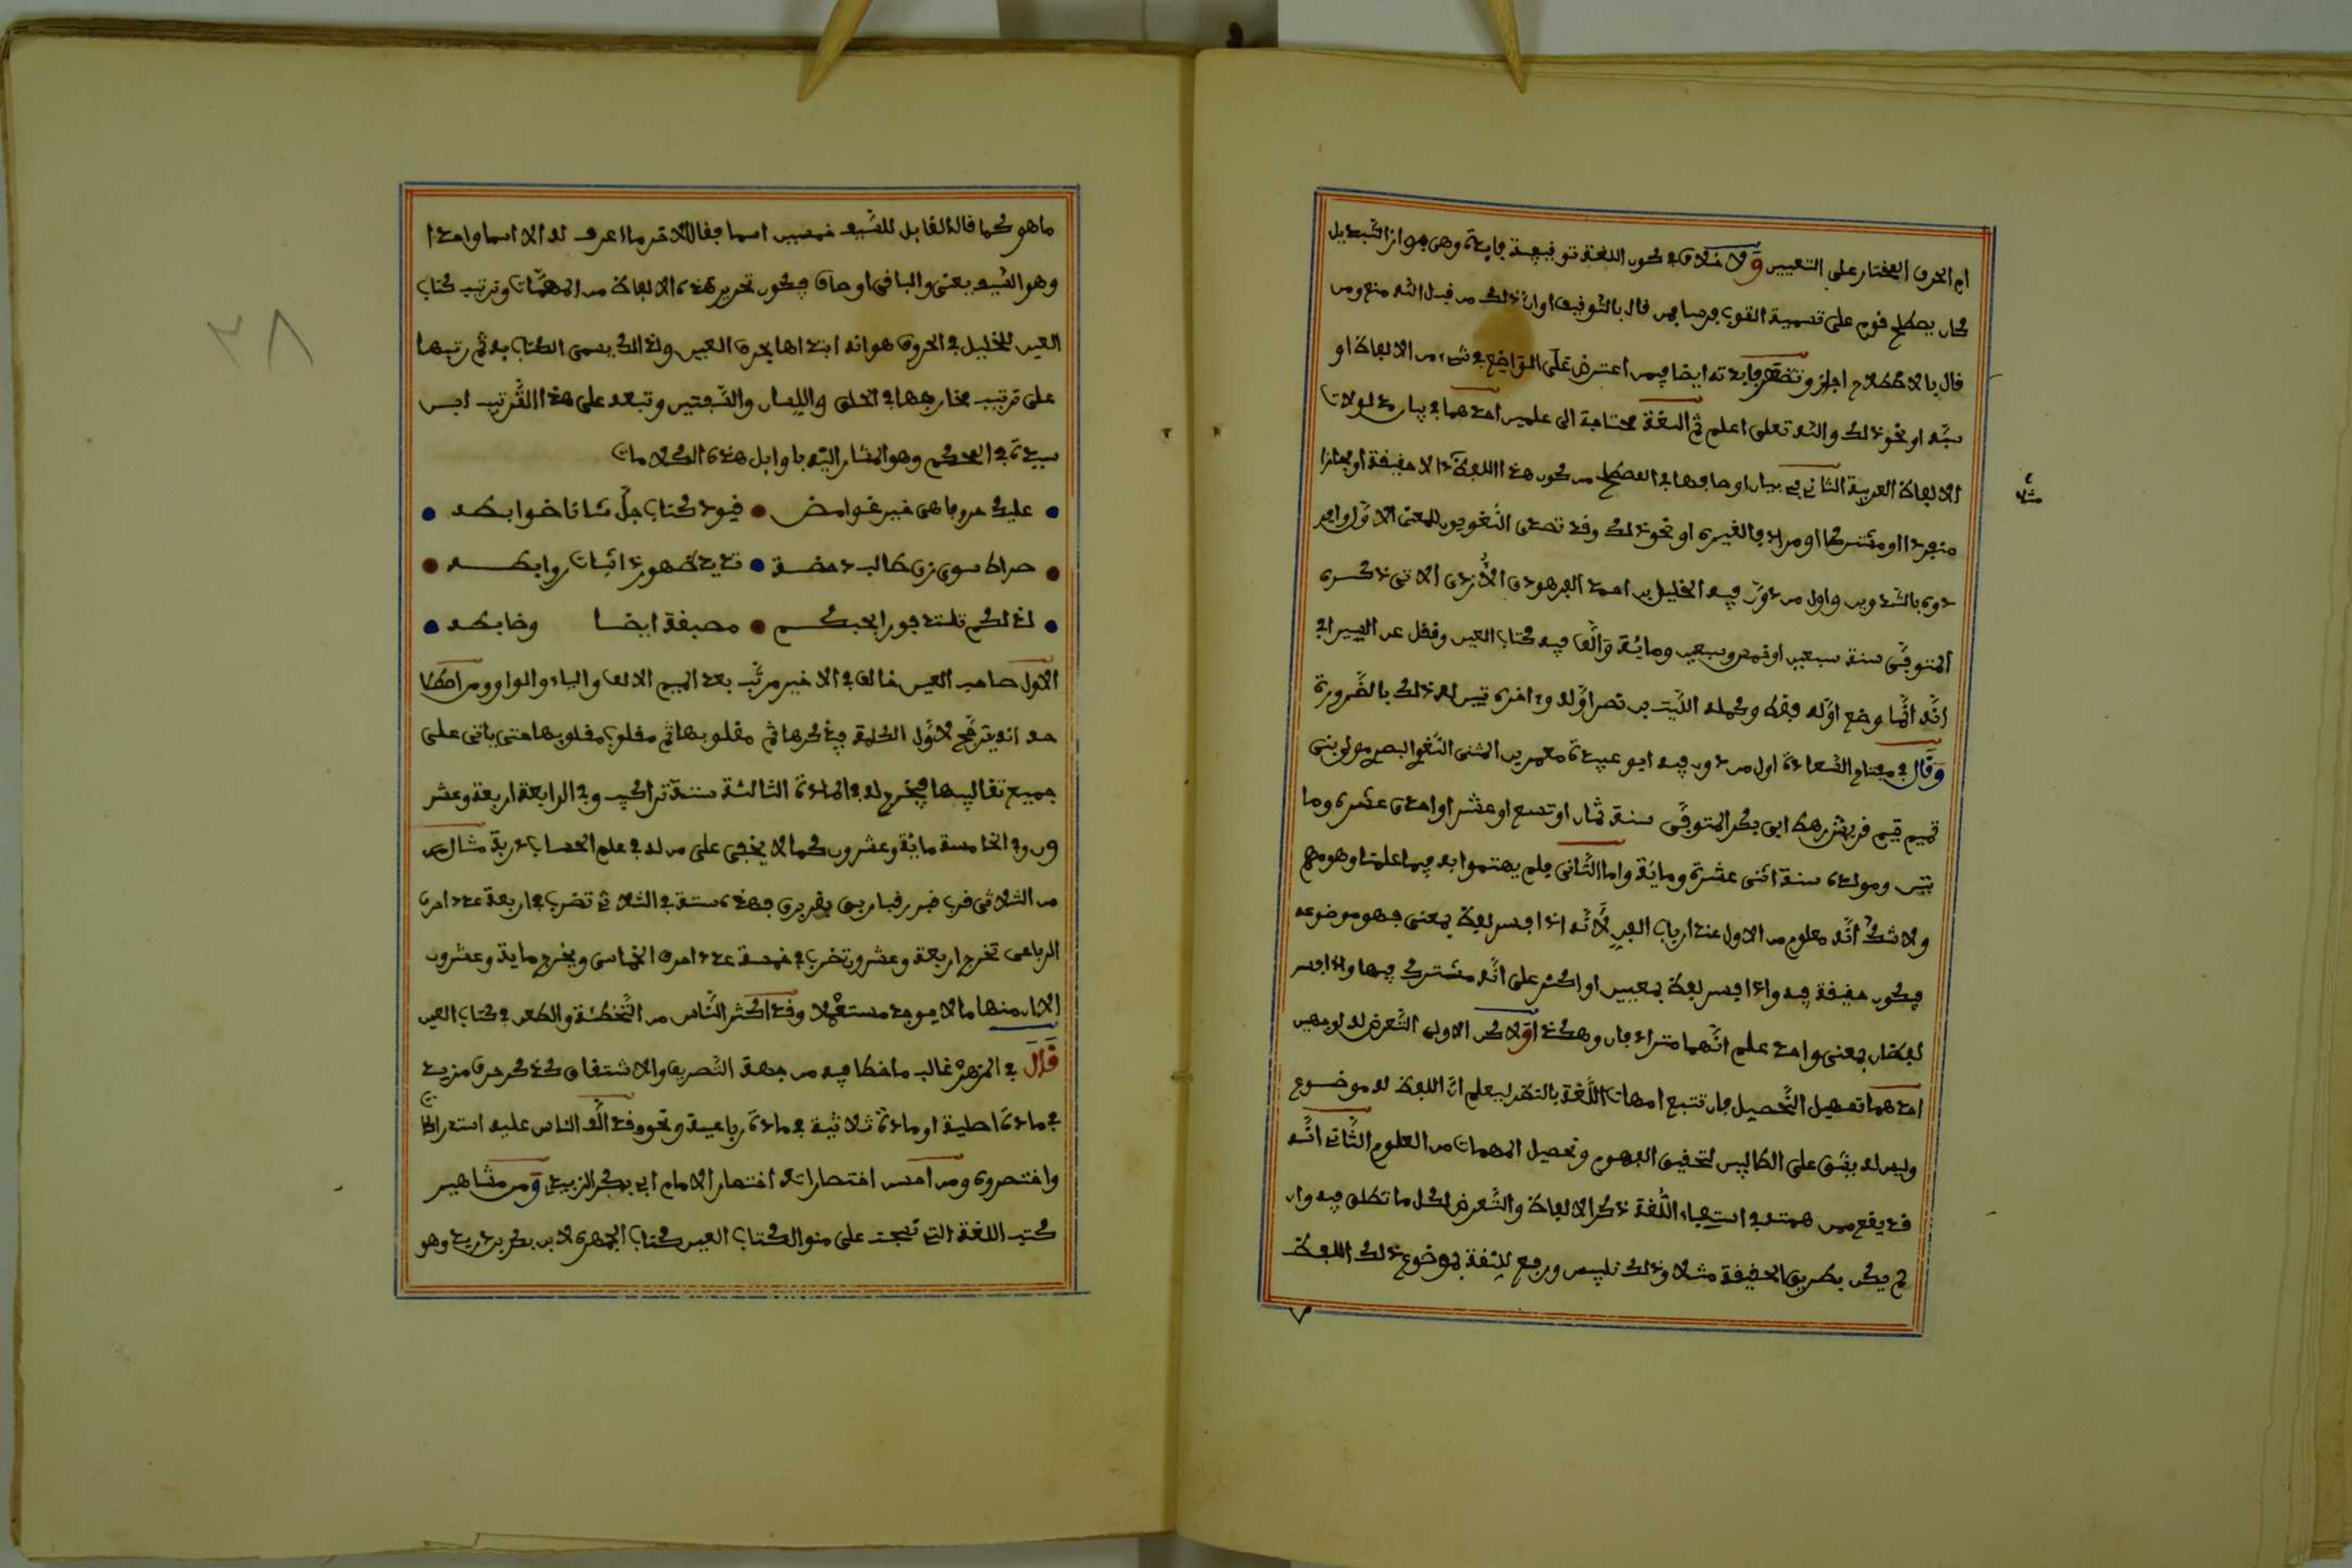 ام الحرف المختار على التعيين ولاختلاف في كون اللغة توقيفية فايدة وهي جواز التبديل
كان يصطلح قوم على تسمية الثوب فرسا فمن قال بالتوقيف اوان ذلك من قبل الله منع ومن
قال بالاصطلاح اجاز وتظهر فايدته ايضا فيمن اعترض على المواضع في شيء من الالفاظ او
سبه او نحو ذلك والله تعلى اعلم ثم اللغة محتاجة الى علمين احدهما في بيان مدلولات
الالفاظ العربية الثاني في بيان اوصافها في المصطلح من كون هذا اللفظ الا حقيقة او مجازا
منفردا او مشتركا او مرادفا لغيره او نحو ذلك وقد تصدى اللغويون للمعنى الاول وافر
دوه بالتدوين واول من دون فيه الخليل بن احمد الفرهودي الازدي الاتي ذكره
المتوفى سنة سبعين او خمس وسبعين ومائة والف فيه كتاب العين ونقل عن السيرافي
انه انما وضع اوله فقط وكمله الليث بن نصر اوله واخره تيسر له ذلك بالضرورة
وقال في مفتاح السعادة اول من دون فيه ابو عبيدة معمر بن المثنى اللغوي البصري مولى بني
تميم تيم قريش رهط ابي بكر المتوفى سنة ثمان او تسع او عشر او احدى عشرة وما
يتين ومولده سنة اثنى عشرة ومائة واما الثاني فلم يهتموا به فيما علمنا وهو مهم
ولا شك انه معلوم من الاول عند ارباب الفن لانه اذا فسر لفظ بمعنى فهو موضوعه
فيكون حقيقة فيه واذا فسر لفظ بمعنيين او اكثر على انه مشترك فيها واذا فسر
لفظان بمعنى واحد علم انهما مترادفان وهكذا ولاكن الاولى التعرض له لوجهين
احدهما تسهيل التحصيل فان تتبع امهات اللغة بالنظر ليعلم ان اللفظ له موضوع
وليس له يشق على الطالبين لتحقيق الفهوم وتحصيل المهمات من العلوم الثاني انه
قد يقع من همته في استيفاء اللغة ذكر الالفاظ والتعرض لكل ما تطلق فيه وان
لم يكن بطريق الحقيقة مثلا وذلك تلبيس ورفع للثقة بموضوع ذلك اللفظ
ما هو كما قال القايل للشيء خمسين اسما فقال الاخر ما اعرف له الا اسما واحدا
وهو الشيء يعنى والباقي اوصاف فيكون تحرير هذه الالفاظ من المهمات وترتيب كتاب
العين للخليل في الحروف هو انه ابتداها بحرف العين ولذالك يسمى الكتاب به ثم رتبها
على ترتيب مخارجها في الحلق واللسان والشفتين وتبعه على هذا الترتيب ابن
سيدة في المحكم وهو المشار اليه باوايل هذه الكلامات
عليك حروفا هي خير غوامض قيود كتاب جل شانا ضوابطه
صراط سوي زل طالب دحضه تزيد ظهورا ذا ثبات روابطه
لذلكم نلتذ فوزا بحبكم مصنفة ايضا وضابطه
الاول صاحب العين خالف في الاخير مرتب بعد الميم الالف والياء والواو ومن اصطلا
حه انه يترجح لاول الكلمة فيذكرها ثم مقلوبها ثم مقلوب مقلوبها حتى ياتي على
جميع تقاليبها فيخرج له في المادة الثالثة ستة تراكيب وفي الرابعة اربعة وعشر
ون وفي الخامسة مائة وعشرون كما لا يخفى على من له في علم الحساب دربة مثالهم
من الثلاثي ضرب ضبر رضب ربض برض بضر فهذه ستة في الثلاثي تضرب في اربعة عدد احرف
الرباعي تخرج اربعة وعشرون تضرب في خمسة عدد احرف الخماسي ويخرج ماية وعشرون
الا ان منها ما لا يوجد مستعملا وقد اكثر الناس من التخطئة والطعن في كتاب العين
قال في المزهر غالب ما خطا فيه من جهة التصريف والاشتقاق كذكر حرف مزيد
في مادة اصلية او مادة ثلاثية في مادة رباعية ونحوه وقد الف الناس عليه استدراكا
واختصروه ومن احسن اختصاراته اختصار الامام ابي بكر الزبيدي ومن مشاهير
كتب اللغة التي نسجت على منوال كتاب العين كتاب الجمهرة لابن بكر بن دريد وهو
مثلا
٢٨